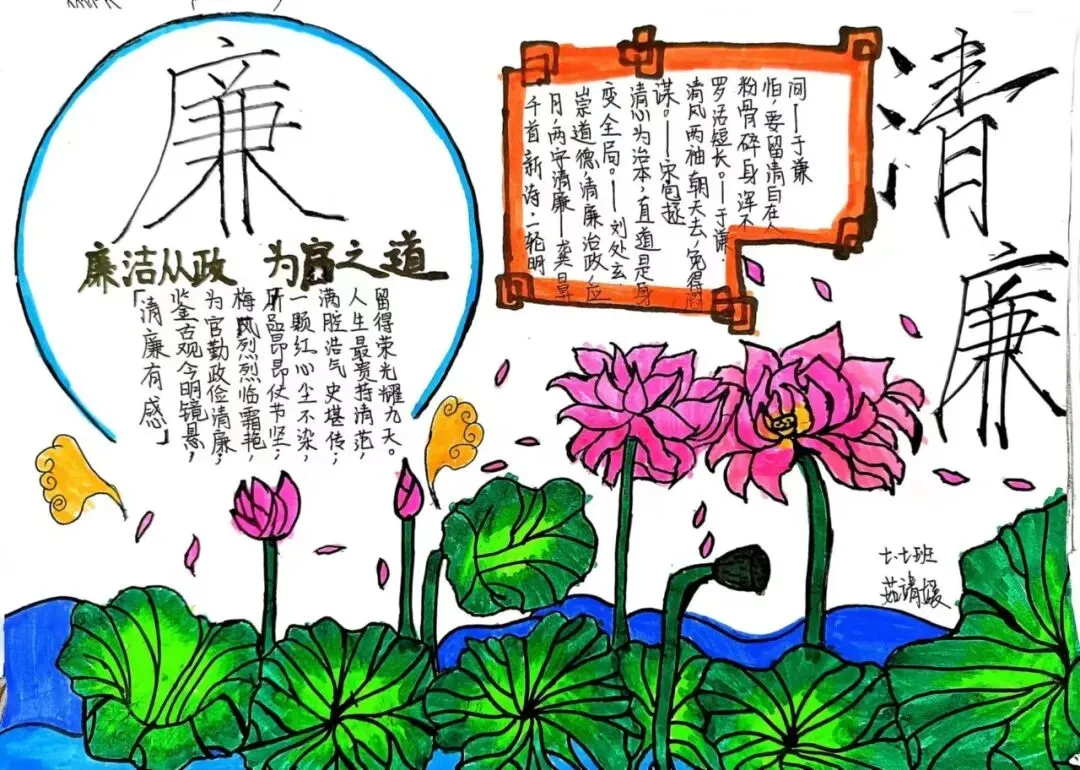 廉
廉洁从政 为官之道
「清廉有感」
鉴古观今明镜悬,
为官勤政俭清廉;
梅风烈烈临霜艳,
品昂昂仗节坚;
一颗红心尘不染,
满腔浩气史堪传;
人生最贵持清范,
留得荣光耀九天。
千首新诗,二轮明
月,两字清廉——龚
崇道德,清廉治政,应
变全局。——刘处玄
清心为治本,直道是身
谋。——宋包拯
清风两袖朝天去,免得阎
罗话短长。——于谦.
粉骨碎身浑不
怕,要留清白在人
间——于谦
清廉
七.七班
茹靖媛